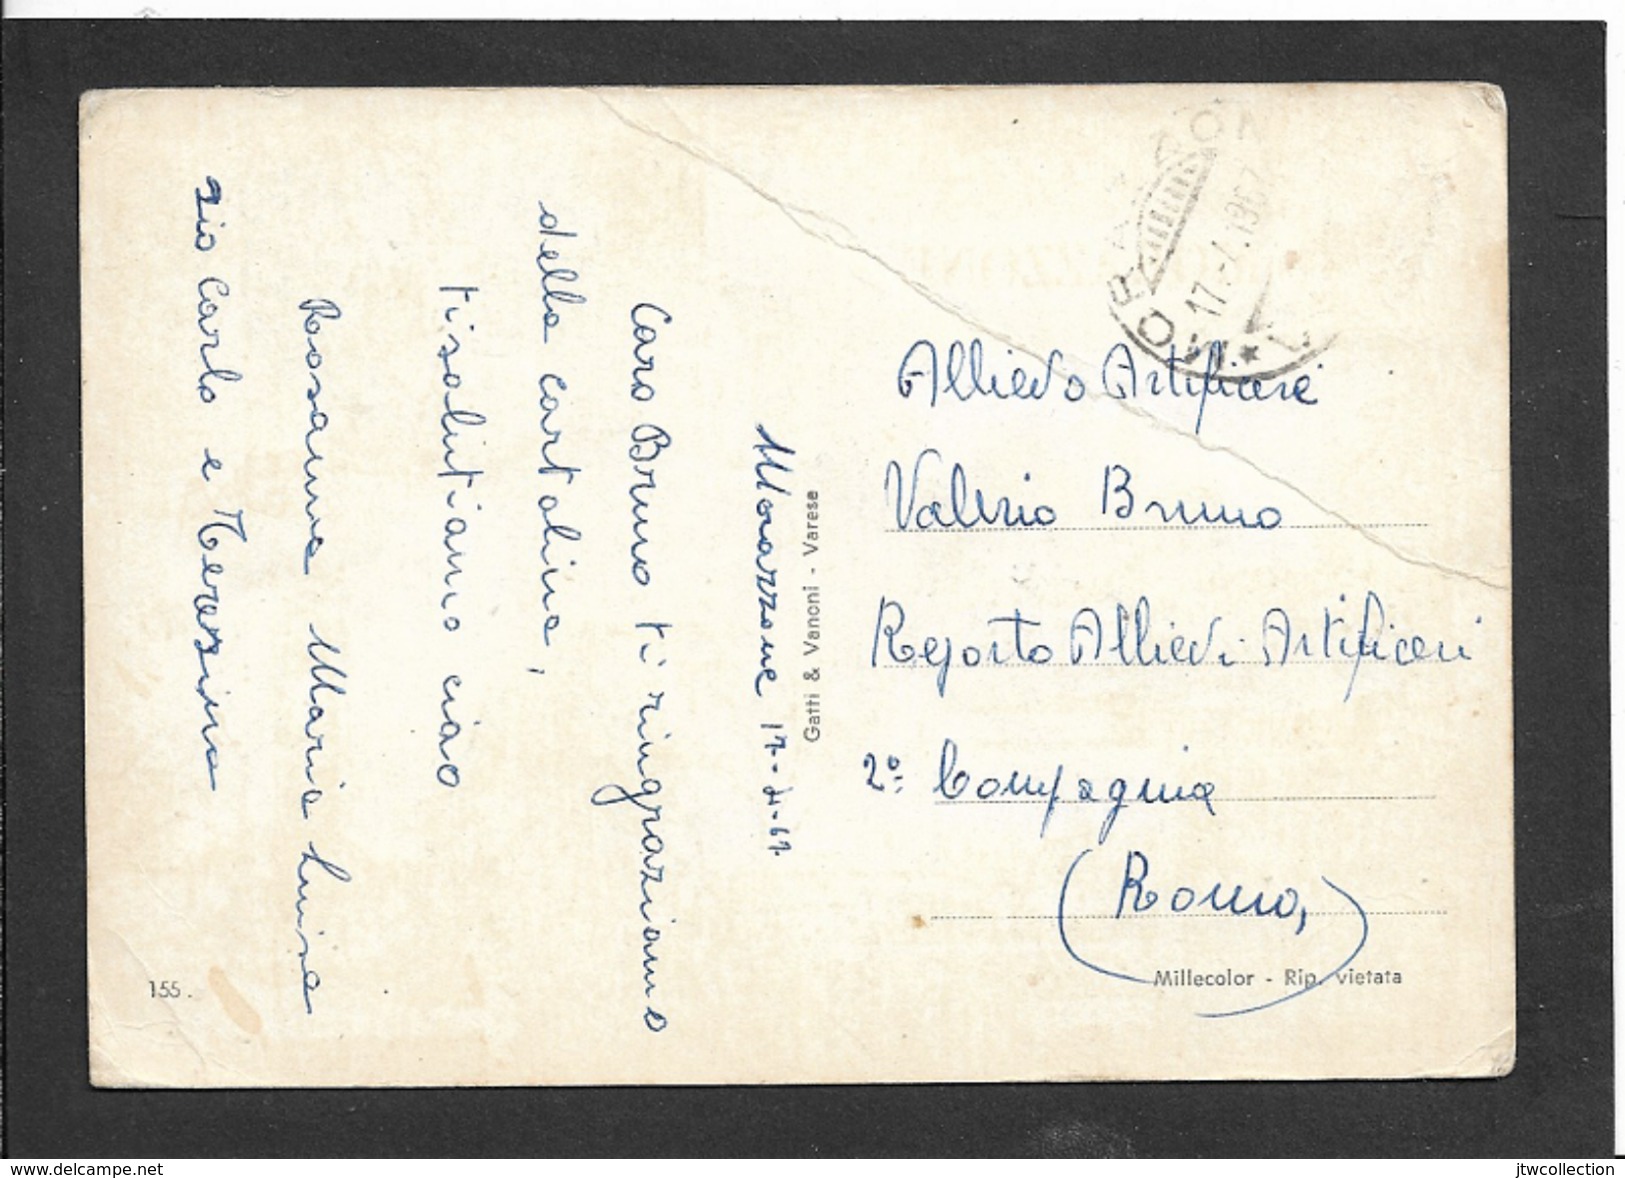 Morazzone 17-4-67
Caro Bruno ti ringraziamo
della cartolina,
ti salutiamo ciao
Rosanna Maria Luisa
zio Carlo e Teresina
155.
Gatti & Vanoni - Varese
MORAZZON
17.-4.1967
Allievo Artificere
Valerio Bruno
Reparto Allievi Artificeri
2º Compagnia
(Roma)
Millecolor - Rip. vietata
www.delcampe.net
jtwcollection